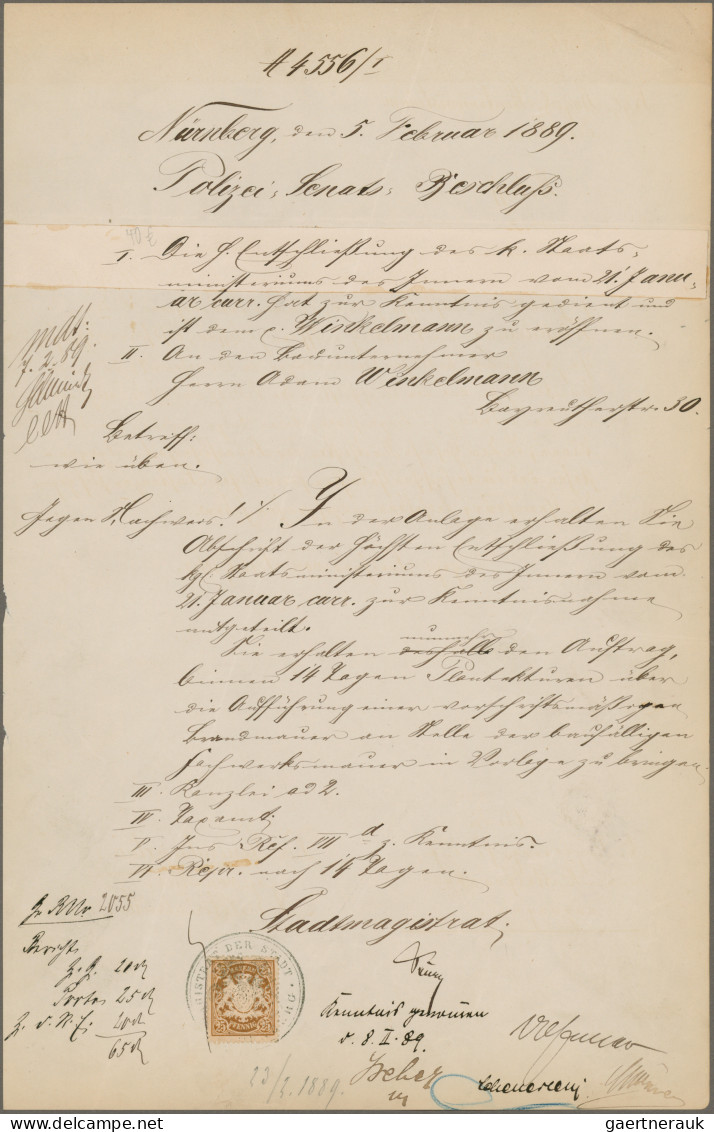 A 4556/I
Nürnberg, den 5. Februar 1889.
Polizei-Senats-Beschluß.
40 £
I. Die h. Entschließung des k. Staats-
ministeriums des Innern vom 21. Janu-
ar curr. hat zur Kenntnis gedient und
ist dem c. Winkelmann zu eröffnen.
II. An den Badunternehmer
Herrn Adam Winkelmann
Bayreutherstr. 30.
7.2.89
Betreff:
wie üben.
Gegen Nachweis! /. In der Anlage erhalten Sie
Abschrift der höchsten Entschließung des
kgl. Staatsministeriums des Innern vom
21. Januar curr. zur Kenntnisnahme
mitgeteilt.
nunmehr
Sie erhalten deshalb den Auftrag,
binnen 14 Tagen Plantekturen über
die Aufführung einer vorschriftsmäßigen
Brandmauer an Stelle der baufälligen
Fachwerksmauer in Vorlage zu bringen.
III. Kanzlei ad 2.
IV. Taxamt.
V. Ins Ref. VIII d z. Kenntnis.
VI. Repr. nach 14 Tagen.
Stadtmagistrat.
2055
Bericht
20 d
Porto 25 d
20 d
65 d
DER STADT
25 PFENNIG 25
Kenntnis genommen
d. 8. II. 89.
23/2. 1889.
gaertnerauk